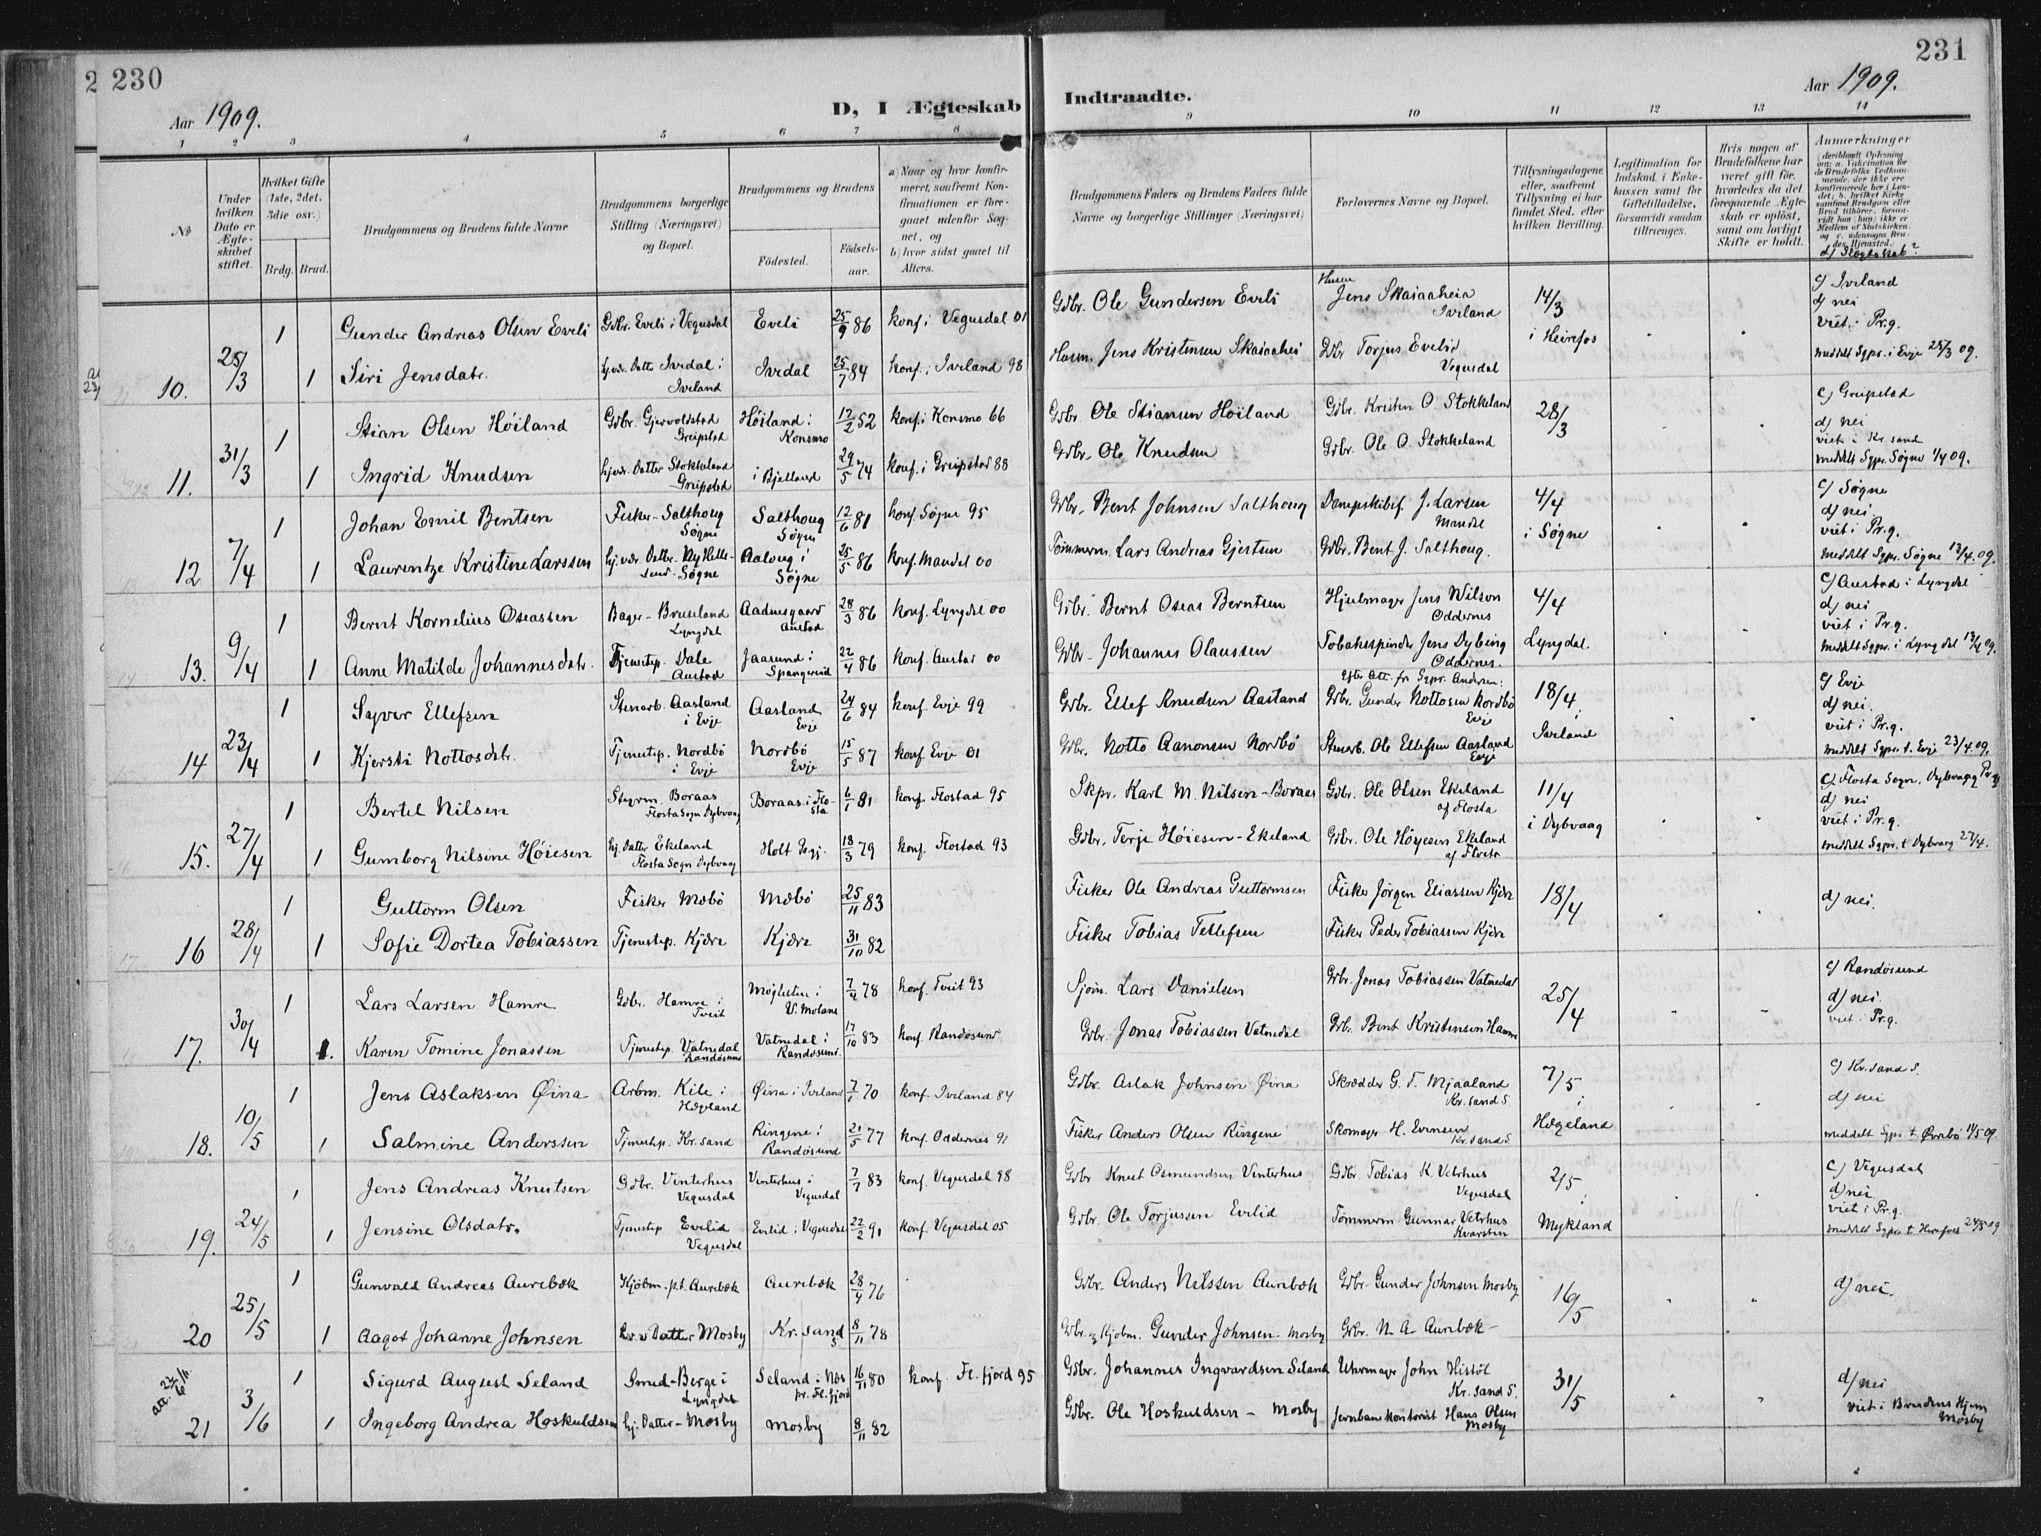 230
231
Aar 1909.
D, I Ægteskab
Indtraadte.
Aar 1909.
1 2 3 4 5 6 7 8 9 10 11 12 13 14
№
Under hvilken Dato er Ægteskabet stiftet.
Hvilket Gifte (1ste, 2det, 3die osv.)
Brdg. Brud.
Brudgommens og Brudens fulde Navne
Brudgommens borgerlige Stilling (Næringsvei) og Bopæl.
Brudgommens og Brudens
Födested.
Födselsaar.
a) Naar og hvor konfirmeret, saafremt Konfirmationen er foregaaet udenfor Sognet, og
b) hvor sidst gaaet til Alters.
Brudgommens Faders og Brudens Faders fulde Navne og borgerlige Stillinger (Næringsvei)
Forlovernes Navne og Bopæl.
Tillysningsdagene eller, saafremt Tillysning ei har fundet Sted, efter hvilken Bevilling.
Legitimation for Indskud i Enkekassen samt for Giftetilladelse, forsaavidt saadan tiltrænges.
Hvis nogen af Brudefolkene har været gift för, hvorledes da det foregaaende Ægteskab er oplöst, samt om lovligt Skifte er holdt.
Anmærkninger
d) Slægtskab?
10. 25/3
1 Gunder Andreas Olsen Eveli Gdbr. Eveli i Vegusdal Eveli 25/9 86 konf. i Vegusdal 01 Gdbr. Ole Gundersen Eveli Jens Skaiaaheia Iveland 14/3 i Heirefos c) Iveland d) nei viet i Pr.g.
1 Siri Jensdatr. hjvdr. Datter Ivedal i Iveland Ivedal 25/7 84 konf. i Iveland 98 Husm. Jens Kristensen Skaiaahei Gdbr Torjus Evelid Vegusdal meddelt Sgpr. i Evje 25/3 09.
11. 31/3
1 Stian Olsen Höiland Gdbr. Gjervoldstad Greipstad Höiland i Konsmo 12/2 52 konf. i Konsmo 66 Gdbr. Ole Stiansen Höiland Gdbr. Kristen O. Stokkeland 28/3 c) Greipstad d) nei viet i Kr.sand
1 Ingrid Knudsen hjvdr. Datter Stokkeland Greipstad i Bjelland 29/5 74 konf. i Greipstad 88 Gdbr. Ole Knudsen Gdbr. Ole O. Stokkeland meddelt Sgpr. Søgne 1/4 09.
12 7/4
1 Johan Emil Bentsen Fisker - Salthoug Søgne Salthoug Søgne 12/6 81 konf. Søgne 95 Gdbr. Bent Johnsen Salthoug Dampskibsf. J. Larsen Mandal 4/4 i Søgne c) Søgne d) nei. viet i Pr.g.
1 Laurentze Kristine Larssen hj.vdr. Datter - Ny Hellesund - Søgne Aaloug i Søgne 25/5 86 konf. Mandal 00 Tömmerm. Lars Andreas Gjertsen Gdbr. Bent J. Salthoug. meddelt Sgpr. Søgne 13/4. 09.
13. 9/4
1 Bernt Kornelius Oseassen Bager - Bruseland Lyngdal Aadnesgaard Austad 28/3 86 konf. Lyngdal 00 Gdbr. Bernt Oseas Berntsen Hjulmager Jens Wilson Oddernes 4/4 Lyngdal. c) Austad i Lyngdal d) nei viet i Pr.g.
1 Anne Matilde Johannesdatr. Tjenestep. Dale Austad Jaasund i Spangereid 22/4 86 konf. Austad 00 Gdbr. Johannes Olaussen Tobaksspinder Jens Dybing Oddernes. meddelt Sgpr. i Lyngdal 13/4 09.
14 23/4
1 Syver Ellefsen Stenarb. Aasland i Evje Aasland Evje 24/6 84 konf. Evje 99 Gdbr. Ellef Knudsen Aasland Efter Att. fr. Sgpr. Andersen: Gdbr. Gunder Nottosen Nordbö Evje 18/4 i Iveland c) Evje d) nei. viet i Pr.g.
1 Kjersti Nottosdtr. Tjenestep. Nordbö i Evje Nordbö Evje 15/5 87 konf. Evje 01 Gdbr. Notto Aanonsen Nordbö Stenarb. Ole Ellefsen Aasland Evje meddelt Sgpr. t. Evje 23/4 09.
15. 27/4
1 Bertel Nilsen Styrm. Boraas Flosta Sogn Dybvaag Boraas i Flosta 6/1 81 konf. Flostad 95 Skpr. Karl M. Nilsen - Boraas Gdbr. Ole Olsen Ekeland af Flosta 11/4 i Dybvaag c) Flosta Sogn, Dybvaag Pr.gj d) nei viet i Pr.g.
1 Gumborg Nilsine Höiesen hj. Datter Ekeland Flosta Sogn Dybvaag Holt Pgj. 18/3 79 konf. Flostad 93 Gdbr. Terje Höiesen - Ekeland Gdbr. Ole Höyesen Ekeland af Flosta meddelt Sgpr. t Dybvaag 27/4.
16 28/4
1 Guttorm Olsen Fisker Mæbö Mæbö 25/11 83 Fisker Ole Andreas Guttormsen Fisker Jörgen Eliassen Kjær 18/4 d) nei.
1 Sofie Dortea Tobiassen Tjenestep. Kjære Kjære 31/10 82 Fisker Tobias Tellefsen Fisker Peder Tobiassen Kjær
17. 30/4
1 Lars Larsen Hamre Gdbr. Hamre i Tveit V. Moland 7/4 78 konf. Tveit 93 Sjöm. Lars Danielsen Gdbr. Jonas Tobiassen Vatnedal 25/4 c) Randösund d) nei. viet i Pr.g.
1. Karen Tomine Jonassen Tjenestep. Vatnedal Randösund Vatnedal i Randösund. 17/10 83 konf. Randösund Gdbr. Jonas Tobiassen Vatnedal Gdbr. Bent Kristensen Hamre
18. 10/5
1 Jens Aslaksen Øina Arbm. Kile i Hægeland Øina i Iveland 7/1 70 konf. Iveland 84 Gdbr. Aslak Johnsen Øina Skrædder G. T. Mjaaland Kr.sand S. 7/5 i Hægeland c) Kr.sand S. d) nei
1 Salmine Anderssen Tjenestep. Kr.sand Ringene i Randösund 21/5 77 konf. Oddernes 92 Fisker Anders Olsen Ringene Skomager H. Evensen Kr.sand S. meddelt Sgpr. t Øvrebö 11/5 09.
19. 24/5
1 Jens Andreas Knutsen Gdbr. Vinterhus Vegusdal Vinterhus i Vegusdal 7/7 83 konf. Vegusdal 98 Gdbr Knut Osmundsen Vinterhus Gdbr Tobias K Vetrhus Vegusdal 2/5 i Mykland c) Vegusdal d) nei viet i Pr.g.
1 Jensine Olsdatr. Tjenestep Evelid Vegusdal Evelid i Vegusdal 22/2 91 konf. Vegusdal 05 Gdbr. Ole Torjussen Evelid Tömmerm Gunnar Vetrhus Kvarsten meddelt Sgpr. t Herefoss 24/5 09
20 25/5
1 Gunvald Andreas Aurebæk Kjöbm. p.t. Aurebæk Aurebæk 28/4 76 Gdbr. Anders Nilssen Aurebæk Gdbr. Gunder Johnsen Mosby 16/5 d) nei.
1 Aagot Johanne Johnsen hv. v Datter Mosby Kr. sand S 8/11 78 Gdbr. og Kjöbm. Gunder Johnsen - Mosby Gdbr. N. A. Aurebæk -
21 3/6
1 Sigurd August Seland Smed - Berge i Lyngdal Seland i Næs pr. Fl. fjord 16/11 80 konf. Fl. fjord 95 Gdbr. Johannes Ingvardsen Seland Uhrmager John Histöl Kr. sand S. 31/5 d) nei viet i Brudens Hjem Mosby
1 Ingeborg Andrea Hoskuldsen hj. Datter - Mosby Mosby 8/11 82 Gdbr. Ole Hoskuldsen - Mosby Jernbanekontorist Hans Olsen Mosby